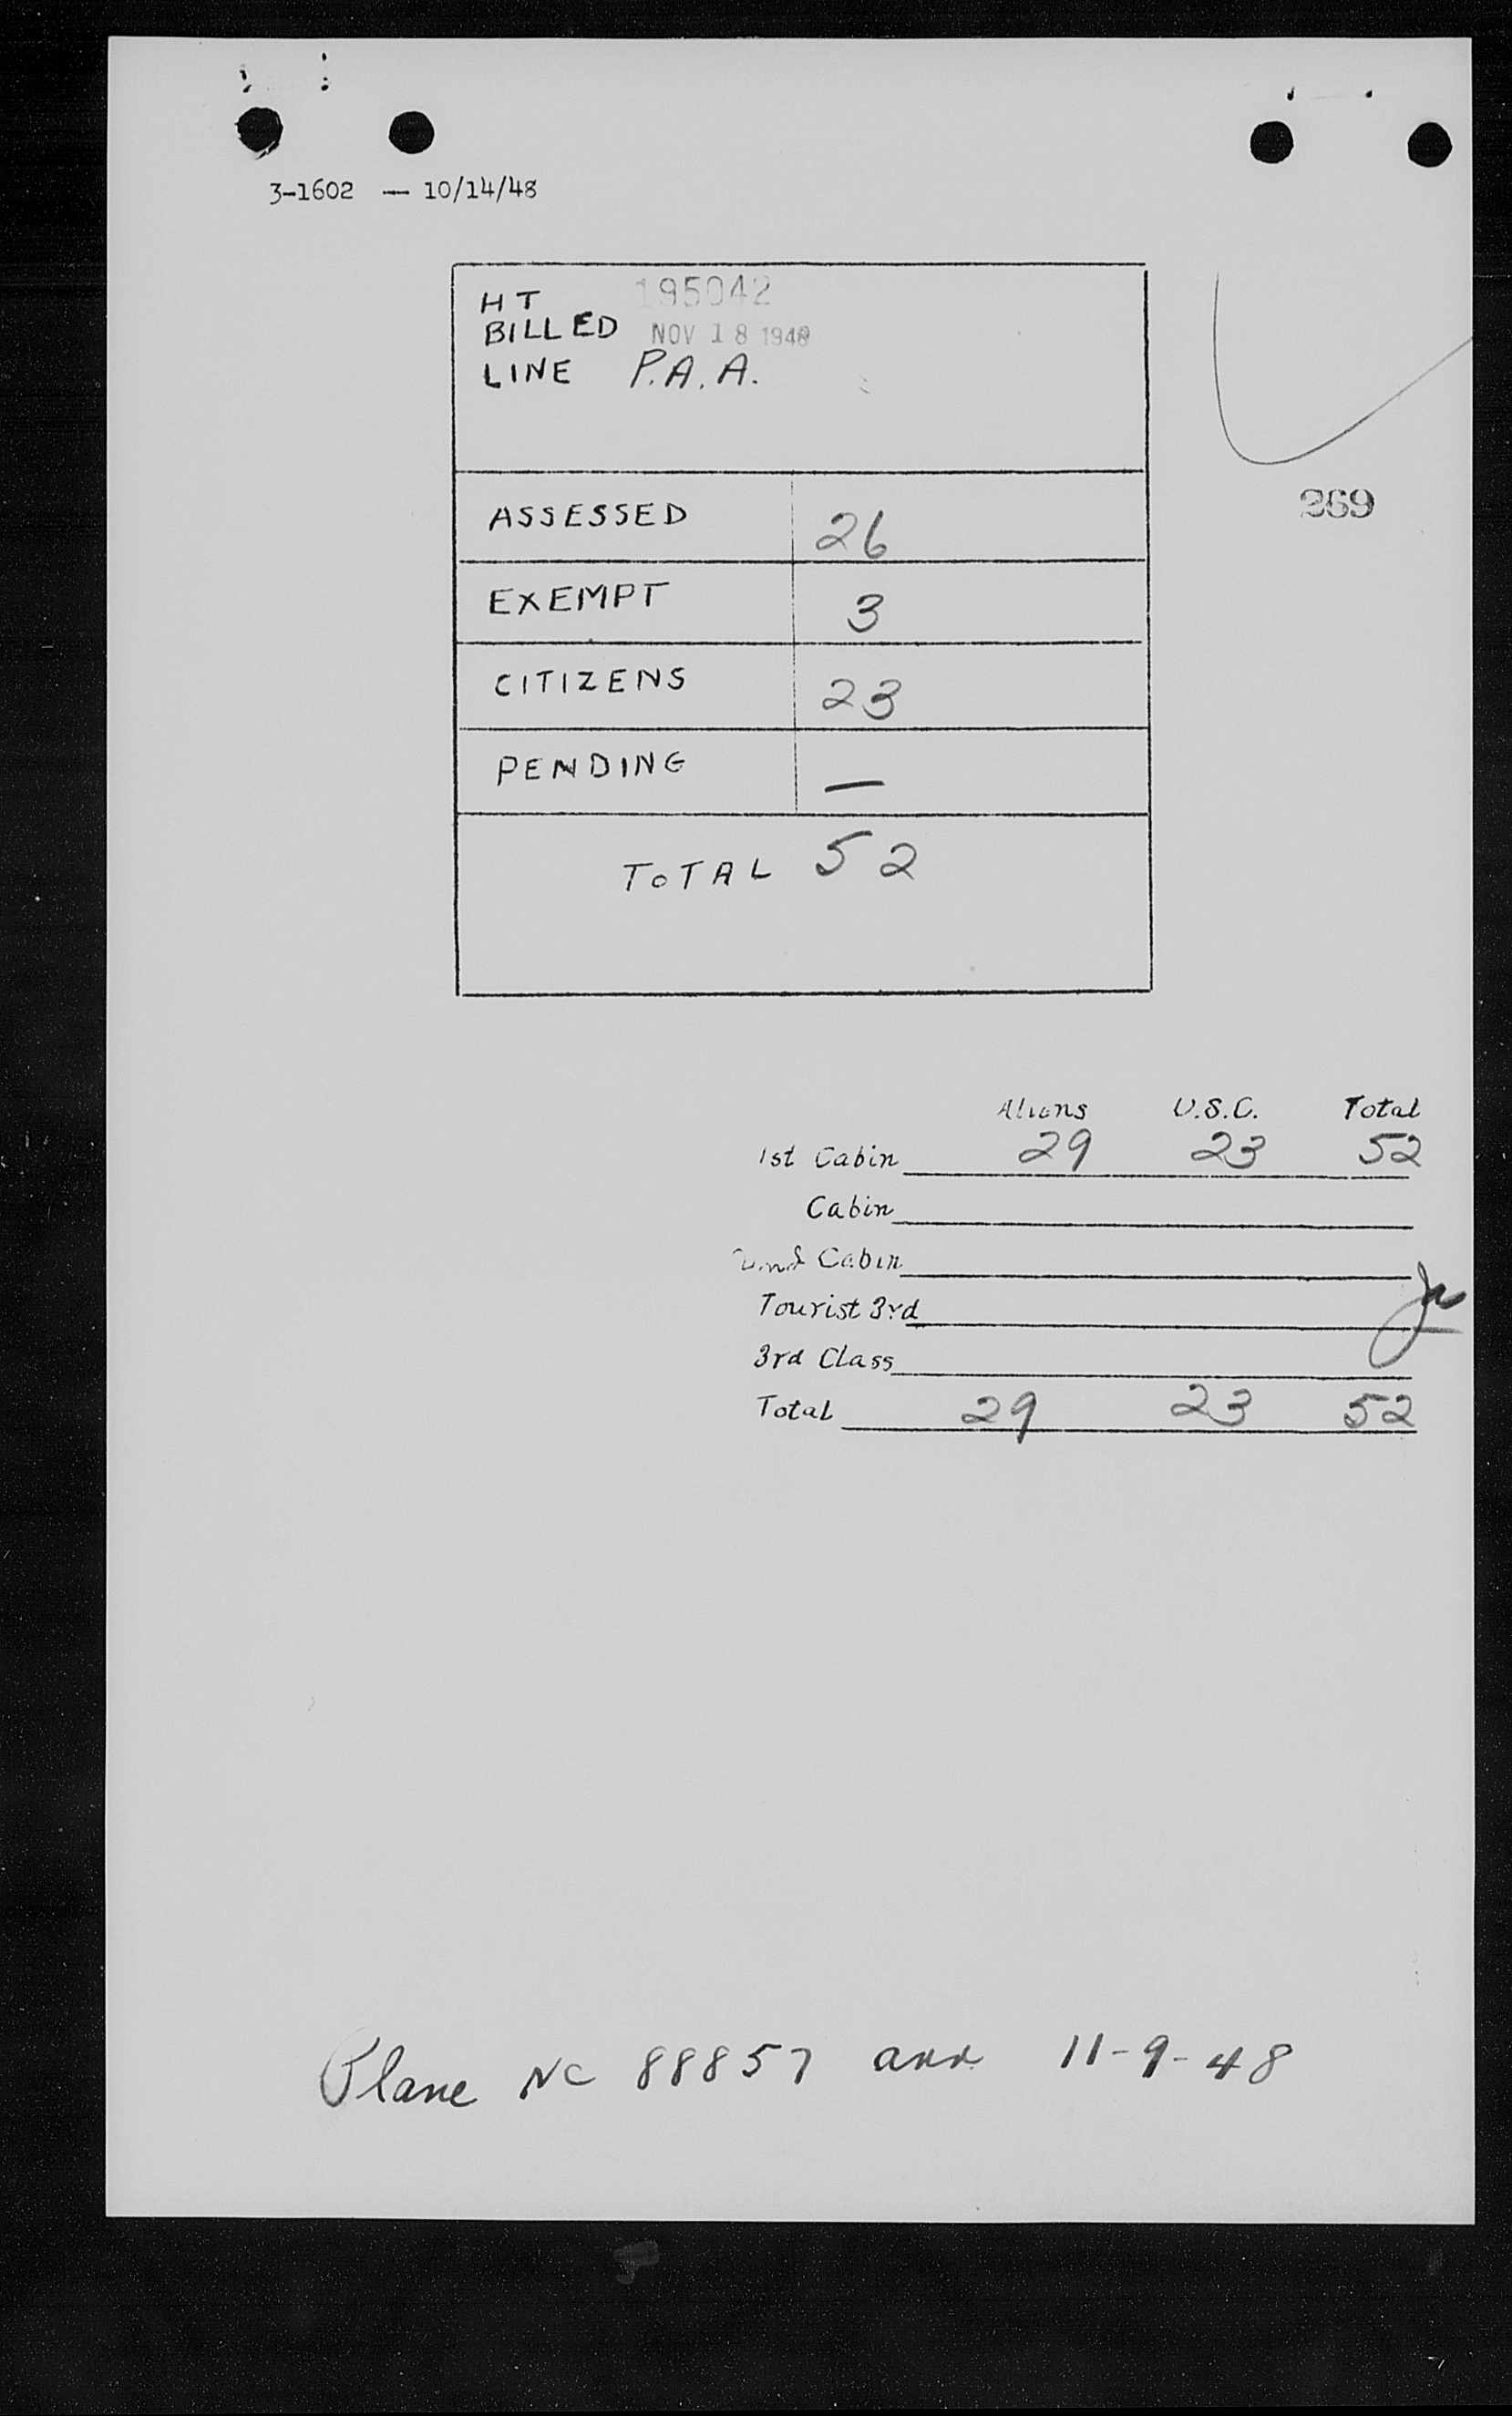 3-1602 — 10/14/48
HT 195042
BILLED NOV 18 1948
LINE P.A.A.
269
ASSESSED 26
EXEMPT 3
CITIZENS 23
PENDING —
TOTAL 52
Aliens U.S.C. Total
1st Cabin 29 23 52
Cabin
2nd Cabin
Tourist 3rd
3rd Class
Total 29 23 52
Plane NC 88857 arr 11-9-48